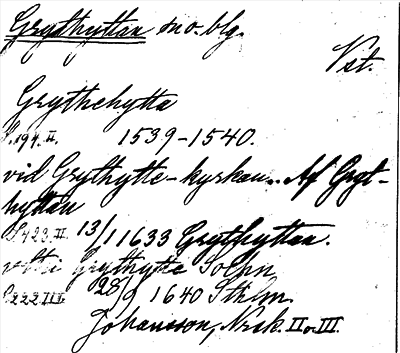 Grythyttan sno-blg.
Vst.
Grythehytta
S. 194. II. 1539-1540.
vid Grythytte-kyrkan. Af Gryt-
hyttan
S 423. II. 13/1 1633 Grythyttan.
uthi Grythytte Sochn
S. 222. III. 28/9 1640 Sthlm.
Johansson, Norsk. II o. III.